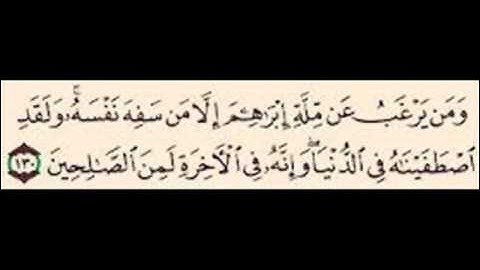 وَمَن يَرْغَبُ عَن مِّلَّةِ إِبْرَٰهِـۧمَ إِلَّا مَن سَفِهَ نَفْسَهُۥۚ وَلَقَدِ
ٱصْطَفَيْنَٰهُ فِى ٱلدُّنْيَاۖ وَإِنَّهُۥ فِى ٱلْأَخِرَةِ لَمِنَ ٱلصَّٰلِحِينَ ١٣٠